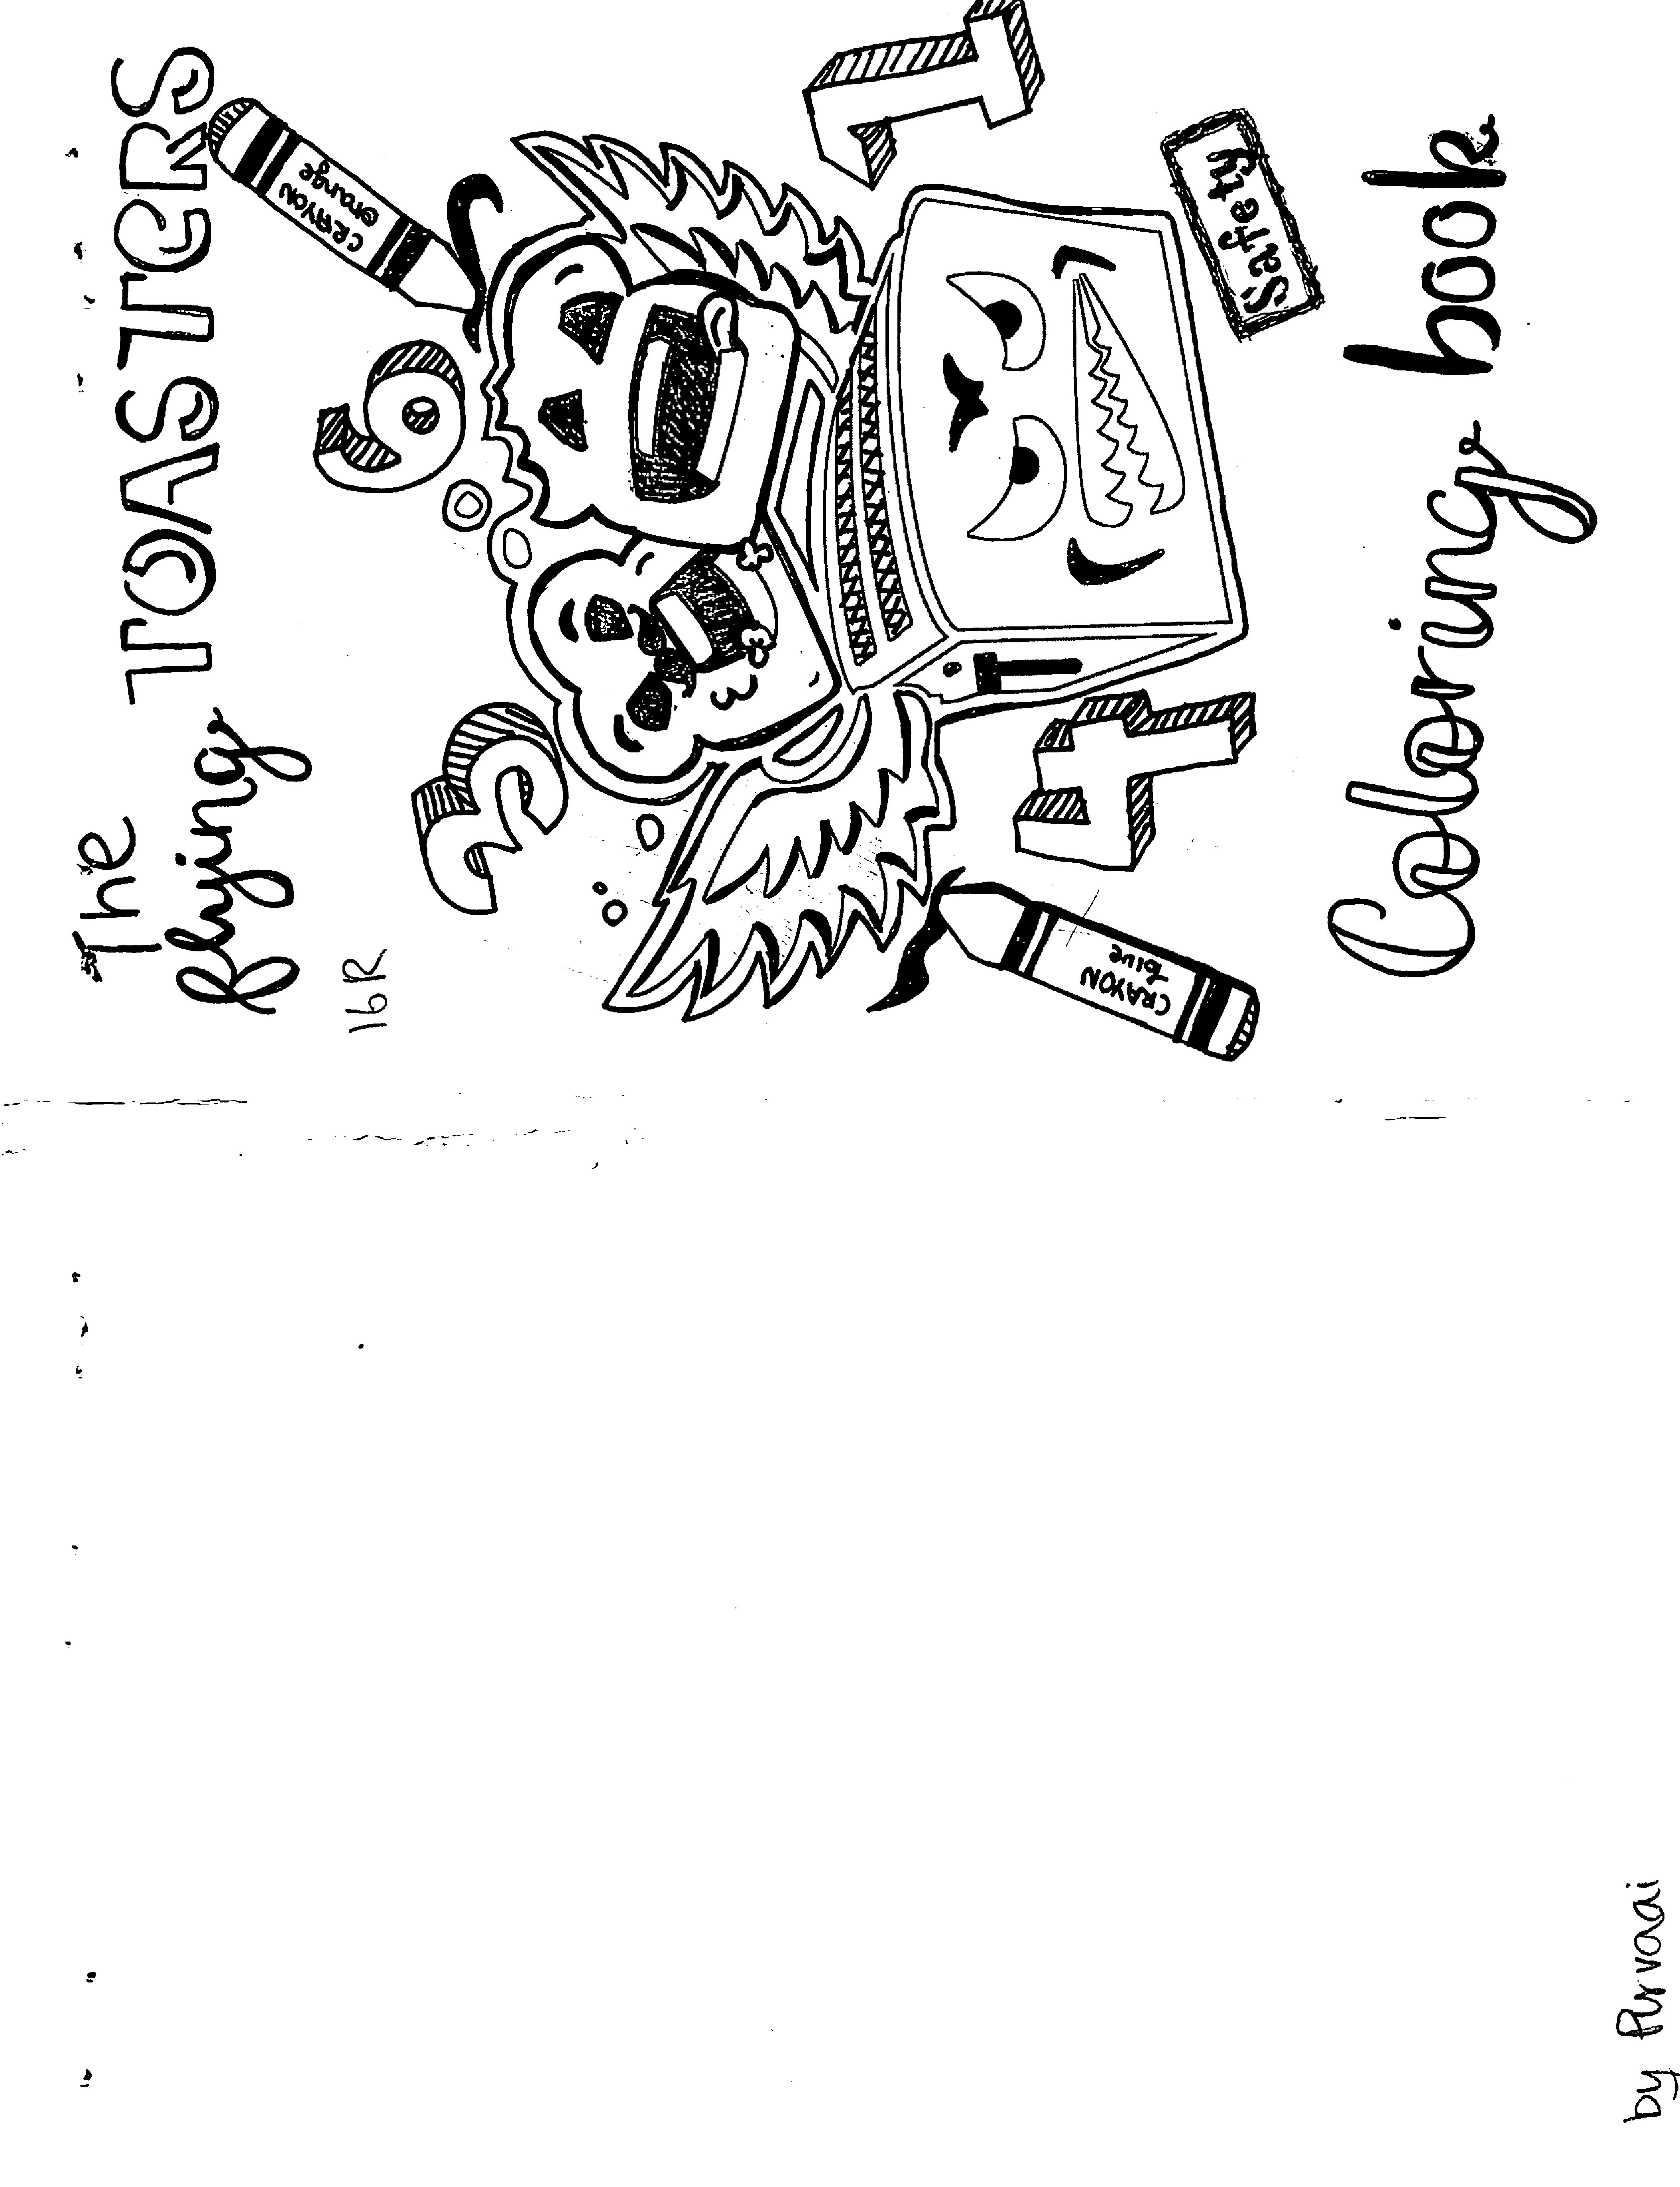 The
flying TOASTeRS
16R
CRAYON
orange
3 6
4 1
CRAYON
blue
Safety
Coloring book
by Purvaai